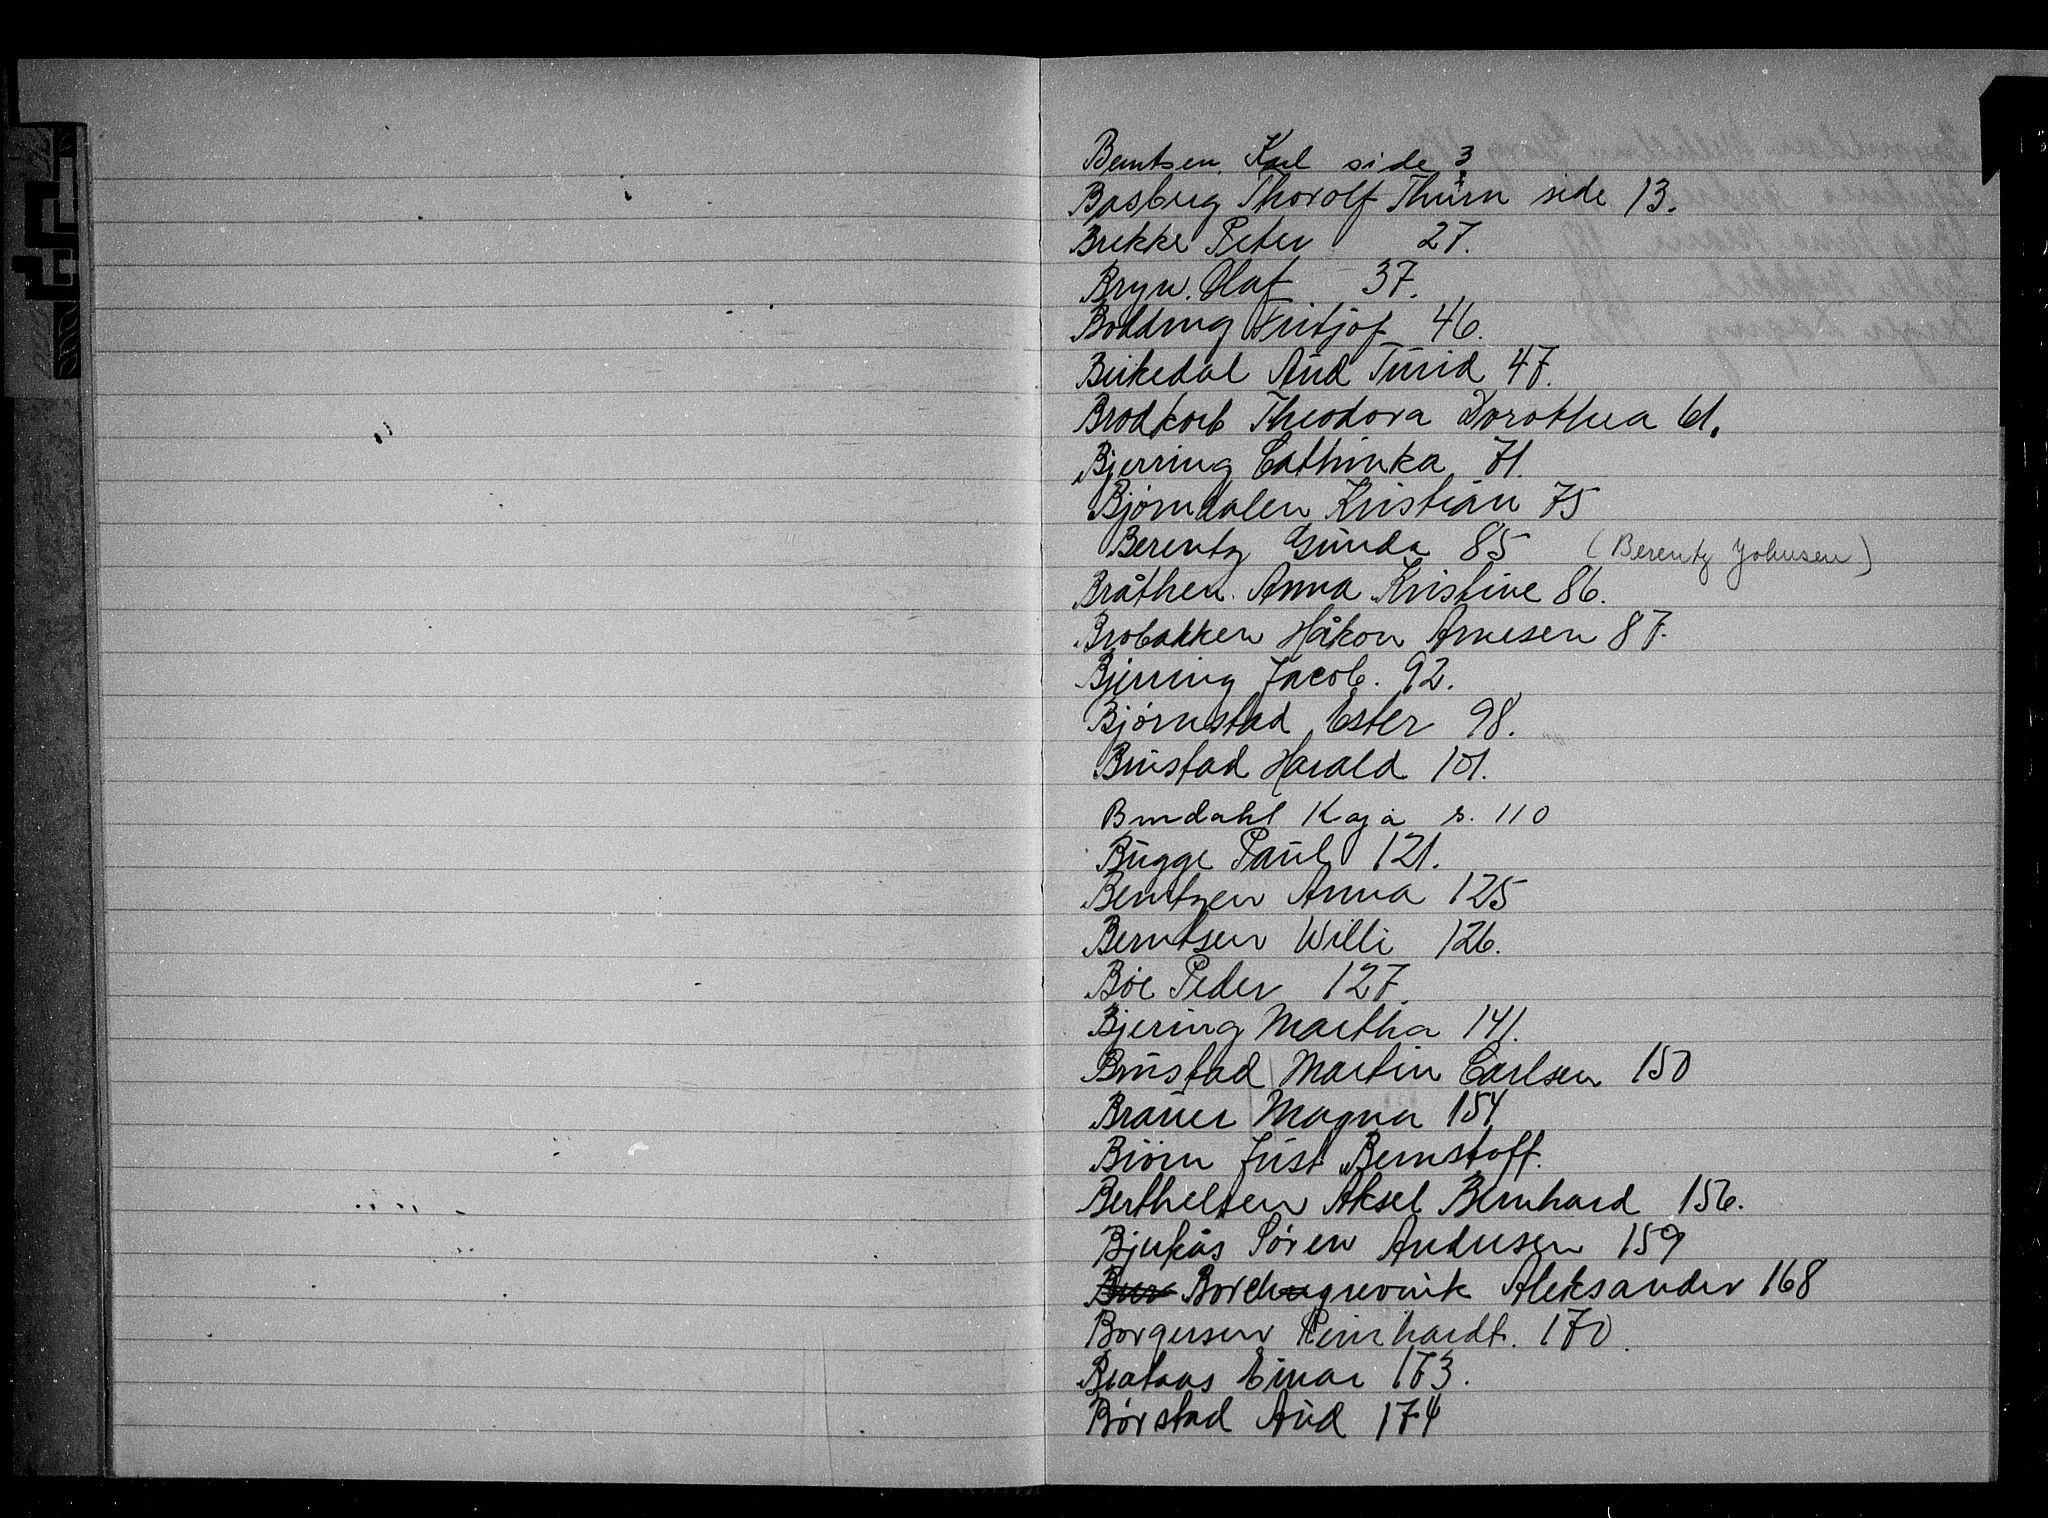 Berntsen, Karl side 3.
Basberg Thorolf Thurn side 13.
Brekke Peter 27.
Bryn. Olaf 37.
Bodding Fritjof 46.
Birkedal Aud Turid 47.
Brodkorb Theodora Dorothea 61.
Bjerring Cathinka 71.
Bjørndalen Kristian 75
Berentz Gunda 85 (Berentz Johnsen)
Bråthen. Anna Kristine 86.
Brobakken Håkon Arnesen 87.
Bjerring Jacob. 92.
Bjørnstad Ester 98.
Brustad Harald 101.
Brudahl Kaja s. 110
Bugge Paul 121.
Bentzen Anna 125
Berntsen Willi 126.
Bøe Peder 127.
Bjering Martha 141.
Brustad Martin Carlsen 150
Brauer Magna 154
Biørn Just Bernstoff.
Berthelsen Aksel Bernhard 156.
Bjerkås Søren Andersen 159
Borchgrevink Aleksander 168
Borgersen Reinhardt. 170.
Brataas Einar 173.
Børstad Aud 174